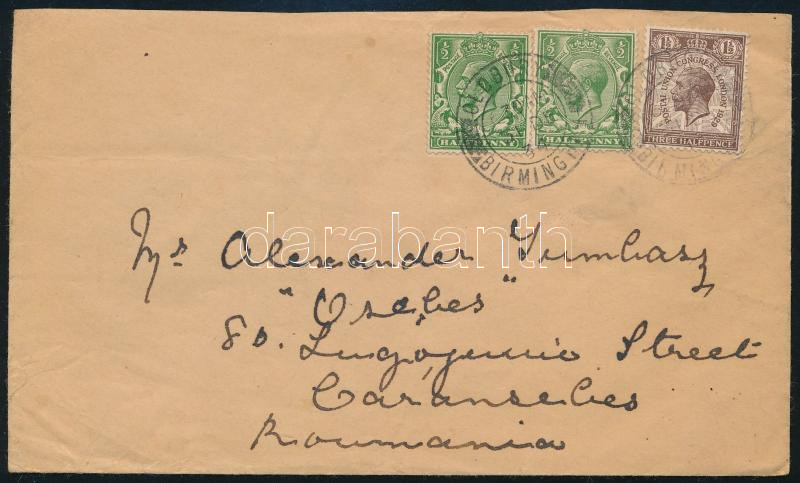 ½ ½
HALFPENNY HALFPENNY
1½ 1½
POSTAL UNION CONGRESS, LONDON 1929
THREE HALFPENCE
BIRMING
darabanth
Mr Alexander Gumbasz
"Orsebes"
80. Lugojului Street
Caransebes
Roumania